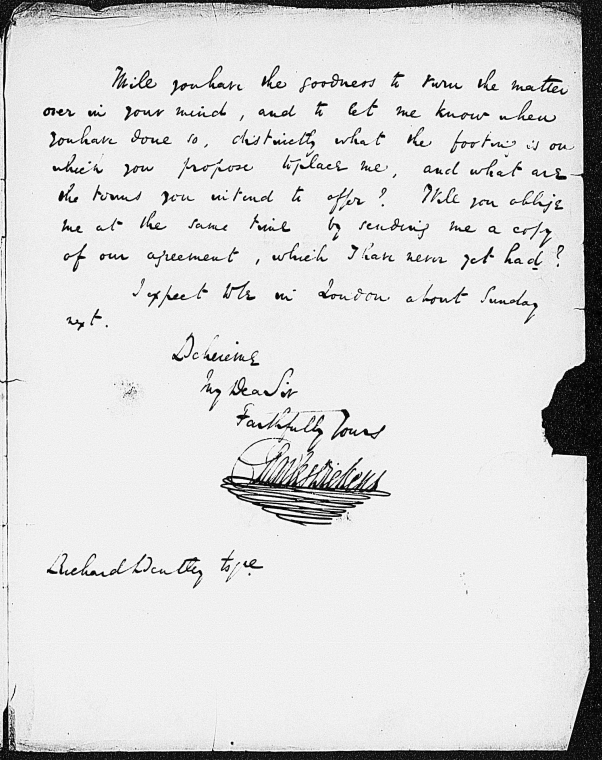 Will you have the goodness to turn the matter
over in your mind, and to let me know when
you have done so, distinctly what the footing is on
which you propose to place me, and what are
the terms you intend to offer? Will you oblige
me at the same time by sending me a copy
of our agreement, which I have never yet had?
I expect to be in London about Sunday
next.
Believe me
My Dear Sir
Faithfully Yours
Charles Dickens
Richard Bentley Esqre.